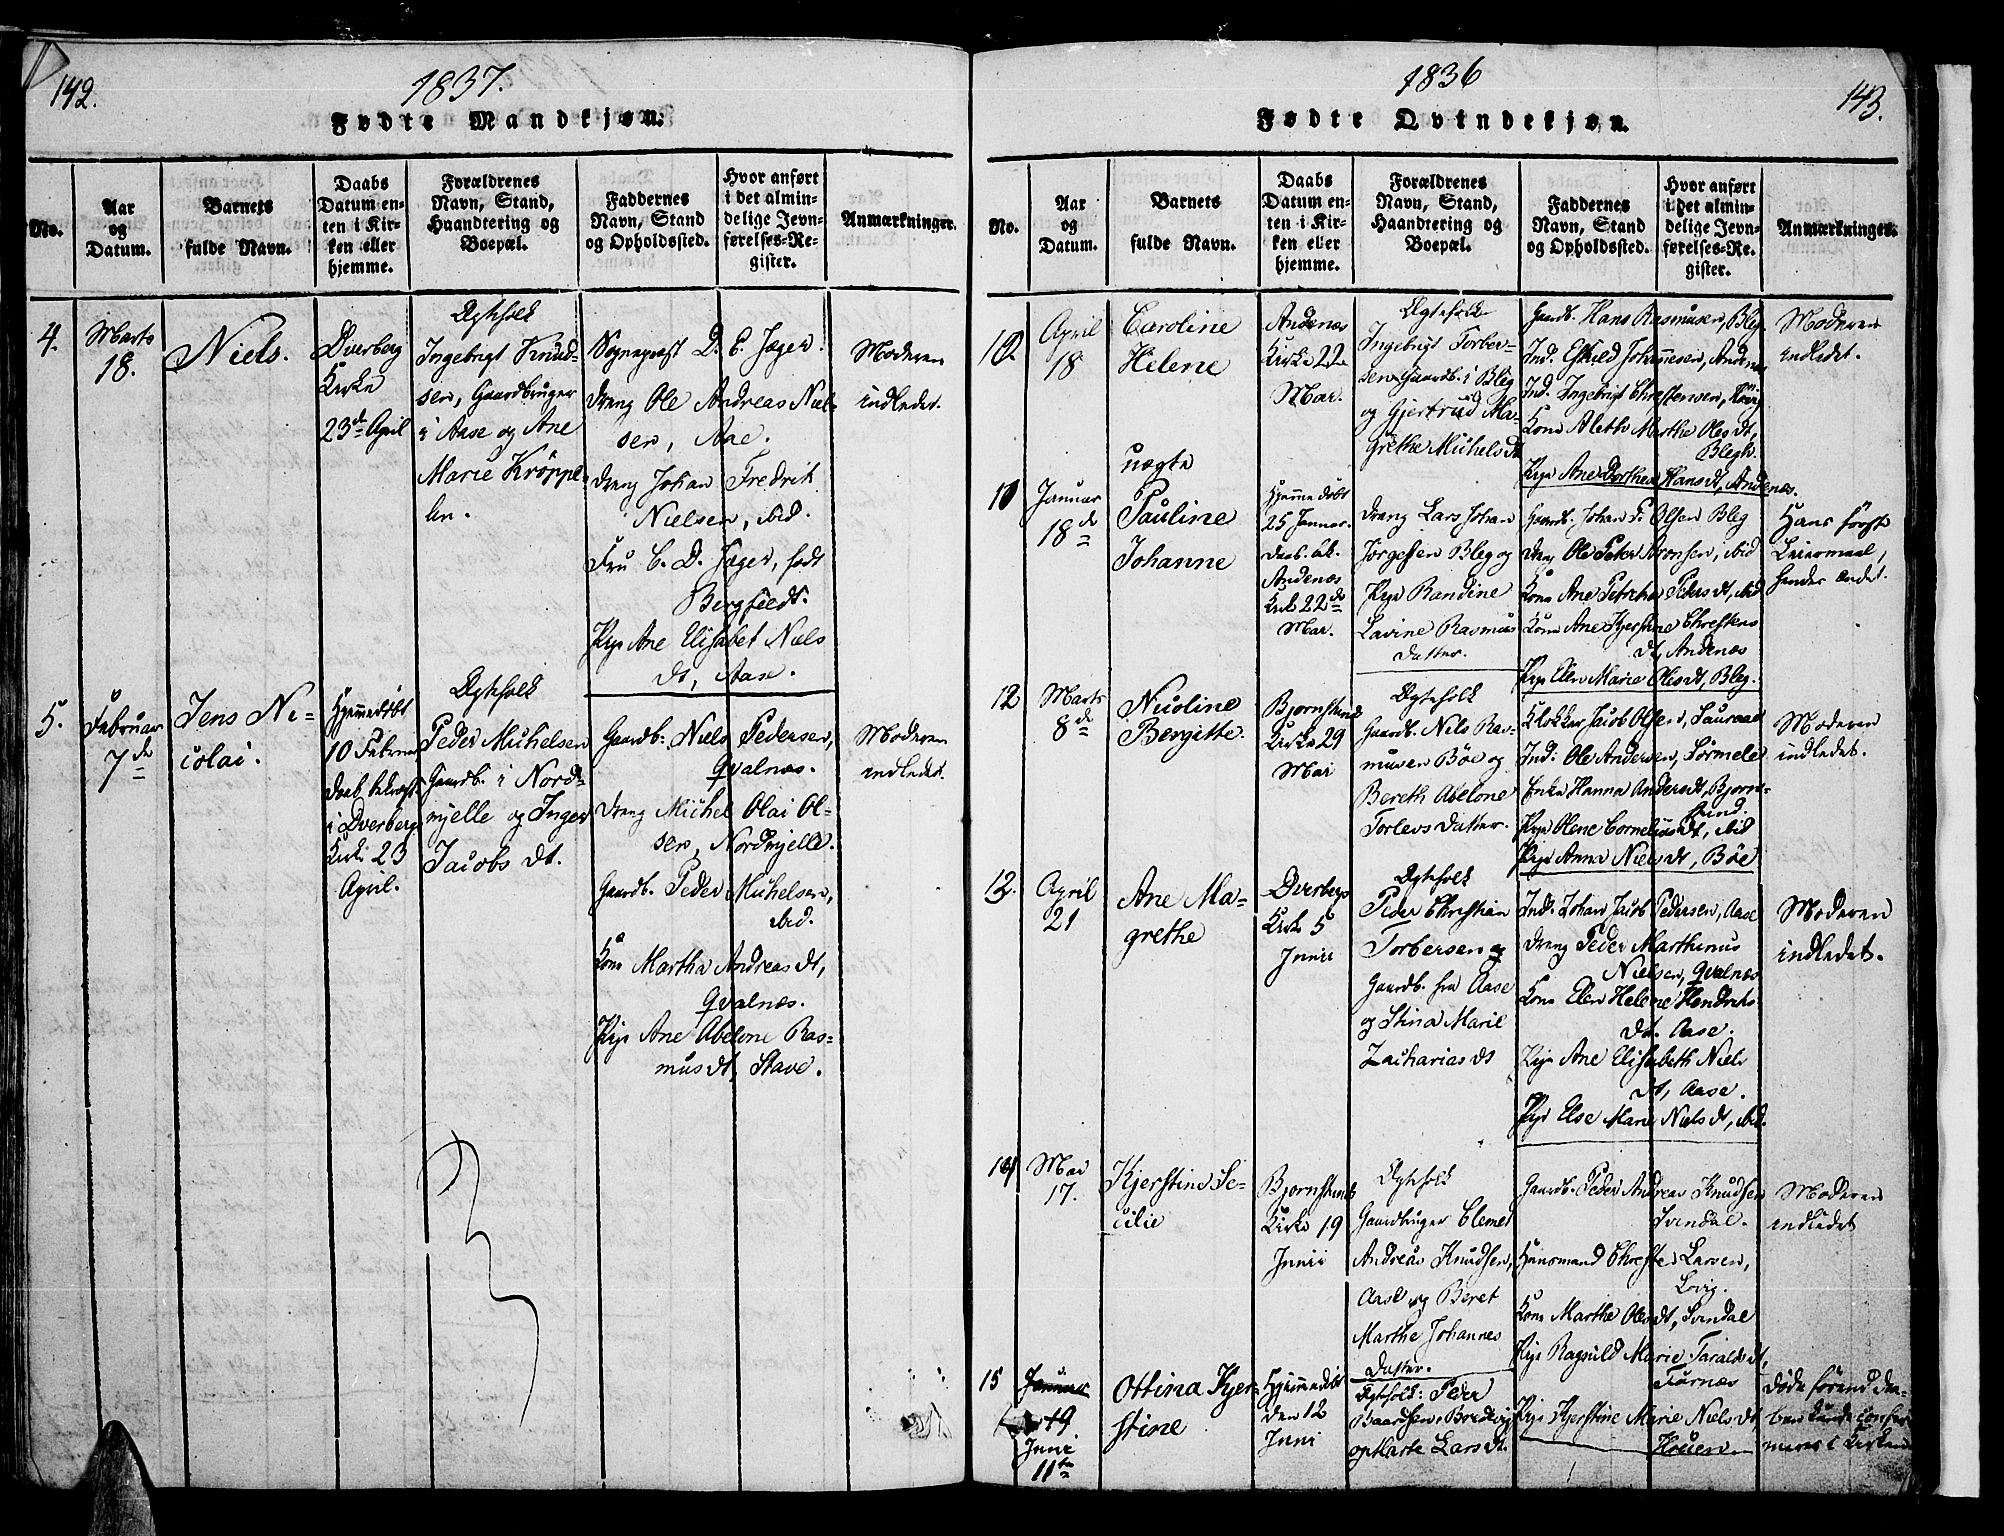 142.
1837.
Fødte Mandkjøn.
No.
Aar
og
Datum.
Barnets
fulde Navn.
Daabs
Datum en-
ten i Kir-
ken eller
hjemme.
Forældrenes
Navn, Stand,
Haandtering og
Boepæl.
Faddernes
Navn, Stand
og Opholdssted.
Hvor anført
i det almin-
delige Jevn-
førelses-Re-
gister.
Anmærkninger.
4.
Marts
18.
Niels.
Dverberg
Kirke
23de April
Ægtefolk
Ingebrigt Knud-
sen, Gaardbruger
i Aase og Ane
Marie Kröppe-
lin.
Sogneprest D. C. Jæger.
Dreng Ole Andreas Niel-
sen, Aae.
Dreng Johan Fredrik
Nielsen, ibid.
Fru C. D. Jæger, født
Bergfeldt.
Pige Ane Elisabet Niels
dt, Aase.
Moderen
indledet.
5.
Februar
7de
Jens Ni-
colai.
Hjemmedøbt
10 Februar
Daab bekræft
i Dverberg
Kirke 23
April.
Ægtefolk
Peder Michelsen
Gaardb. i Nord-
mjelle og Inger
Jacobs dt.
Gaardb. Niels Pedersen,
Qvalnæs.
Dreng Michel Olai Ol-
sen, Nordmjelle.
Gaardb. Peder Michelsen,
ibid.
Kone Martha Andreas dt,
Qvalnæs.
Pige Ane Abelone Ras-
mus dt, Stave.
Moderen
indledet.
1836
143.
Fødte Qvindekjøn.
No.
Aar
og
Datum.
Barnets
fulde Navn.
Daabs
Datum en-
ten i Kir-
ken eller
hjemme.
Forældrenes
Navn, Stand,
Haandtering og
Boepæl.
Faddernes
Navn, Stand
og Opholdssted.
Hvor anført
i det almin-
delige Jevn-
førelses-Re-
gister.
Anmærkninger.
10.
April
18
Caroline
Helene
Andenæs
Kirke 22
Mai.
Ægtefolk
Ingebrigt Torber-
sen Gaardb. i Bleg
og Gjertrud Ma-
grethe Michels dt
Gaardb. Hans Rasmusen, Bleg
Ind. Eskild Johannesen, Andenæs
Ind. Ingebrigt Christensen,
Kone Aleth Marthe Oles dt,
Blegh.
Pige Ane Dorthea Hans dt, Andenæs.
Moderen
indledet.
11
Januar
18de
uægte
Pauline
Johanne
Hjemmedøbt
25 Januar.
Daab. bk.
Andenæs
Kirk 22de
Mai.
Dreng Lars Johan
Jörgessen Bleg og
Pige Randine
Lavine Rasmus
datter.
Gaardb. Johan F. Olsen Bleg
Dreng Ole Peter Aronsen, ibid
Kone Ane Petrikke Peders dt, ibid
Kone Ane Kjerstine Christens
dt, Andenæs
Pige Elen Marie Oles dt, Bleg.
Hans første
Leiermaal,
hendes andet.
12
Marts
8de
Nicoline
Bergitte.
Bjørnskinds
Kirke 29
Mai
Ægtefolk
Gaardb. Nils Ras-
musen Böe og
Bereth Abelone
Torlevs Datter.
Klokker Jacob Olsen, Sauraae
Ind. Ole Andersen, Sörmele
Enke Hanna Anders dt, Bjørn-
skind.
Pige Olene Cornelius dt, ibid
Pige Anna Niels dt, Böe
Moderen
indledet.
12.
April
21
Ane Ma-
grethe
Dverbergs
Kirke 5
Junii
Ægtefolk
Peder Christian
Torbersen
Gaardb. fra Aase
og Stina Marie
Zacharias dt
Ind. Johan Jacob Pedersen, Aase
Dreng Peder Marthinus
Nielsen, Qvalnæs
Kone Elen Helene Hendriks
dt. Aase.
Pige Ane Elisabeth Niels
dt, Aase.
Pige Else Marie Niels dt, ibid.
Moderen
indledet.
14
Mai
17.
Kjerstine Se-
cilie
Bjørnskinds
Kirke 19
Junii
Ægtefolk
Gaardbruger Clemet
Andreas Knudsen,
Aase og Beret
Marthe Johannes
Datter.
Gaardb. Peder Andreas Knudsen
Svendal.
Huusmand Christen Larsen,
Lovig.
Kone Marthe Oles dt, Svendal
Pige Ragnild Marie Taralds dt,
Furnæs
Pige Kjerstine Marie Niels dt,
Moderen
indledet
15
Januar
19
Juni
11te
Ottina Kjer-
stine
Hjemmedøbt
den 12
Juni
Ægtefolk: Peder
Baardsen, Bredevig
og Marte Lars dt.
døde førend Daa-
ben kunde confir-
meres i Kirken